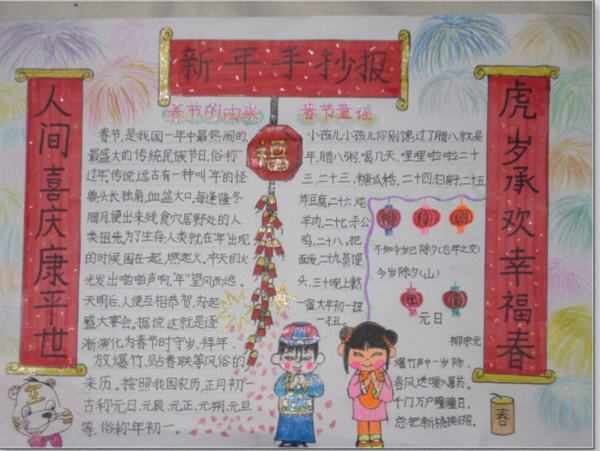 新年手抄报
人间喜庆康平世
虎岁承欢幸福春
春节的由来
春节,是我国一年中最热闹的
最盛大的传统民族节日,俗称
过年,传说远古有一种叫年的怪
兽头长独角,血盆大口,每逢隆冬
人类祖先,为了生存人类就在年出现
的时候围在一起,燃起大,冲天的火
光发出啪啪声响,年"望而怯
天明后人便互相恭贺,办起
盛大宴会,据说这就是逐
渐演化为春节时守岁,拜年,
放爆竹,贴春联等风俗的
来历,按照我国农历,正月初一
古称元日,元辰,元正,元朔,元旦
等,俗称年初一.
福
春节童谣
小孩儿小孩儿你别馋过了腊八就是
年,腊八粥,喝几天,哩哩啦啦二十
三,二十三,糖瓜粘,二十四扫房子,二十五
炸豆腐,二十六,炖
羊肉,二十七,杀公
鸡,二十八,把
面发,二十九,蒸馒
头,三十晚上熬
一宿大年初一扭
一扭.
不知今岁已除夕(七年之交)
今岁除夕(山)
元日
柳宗元
爆竹声中一岁除,
春风送暖入屠苏,
千门万户曈曈日,
总把新桃换旧符.
春